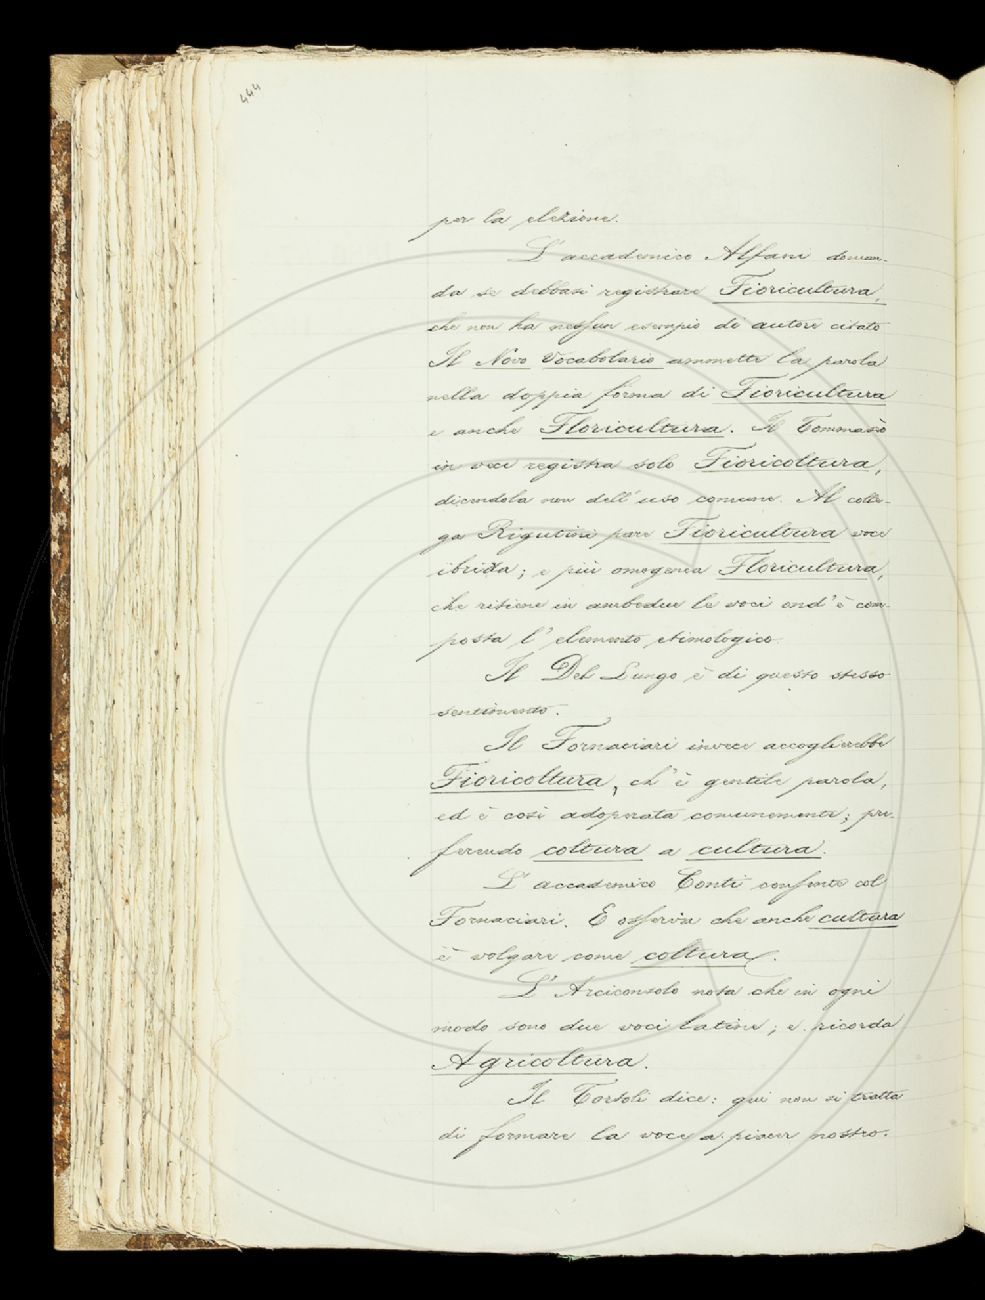 444
per la elezione.
L' accademico Alfani doman-
da se debbasi registrare Fioricultura,
che non ha nessun esempio di autore citato
Il Novo Vocabolario ammette la parola
nella doppia forma di Fioricultura
e anche Floricultura. Il Tommasèo
in vece registra solo Fioricoltura,
dicendola non dell' uso comune. Al colle-
ga Rigutini pare Fioricultura voce
ibrida; e più omogenea Floricultura,
che ritiene in ambedue le voci ond' è com-
posta l' elemento etimologico.
Il Del Lungo è di questo stesso
sentimento.
Il Fornaciari invece accoglierebbe
Fioricoltura, ch' è gentile parola,
ed è così adoprata comunemente; pre-
ferendo coltura a cultura.
L' accademico Conti consente col
Fornaciari. E osserva che anche cultura
è volgare come coltura.
L' Arciconsolo nota che in ogni
modo sono due voci latine; e ricorda
Agricoltura.
Il Tortoli dice: qui non si tratta
di formare la voce a piacer nostro.